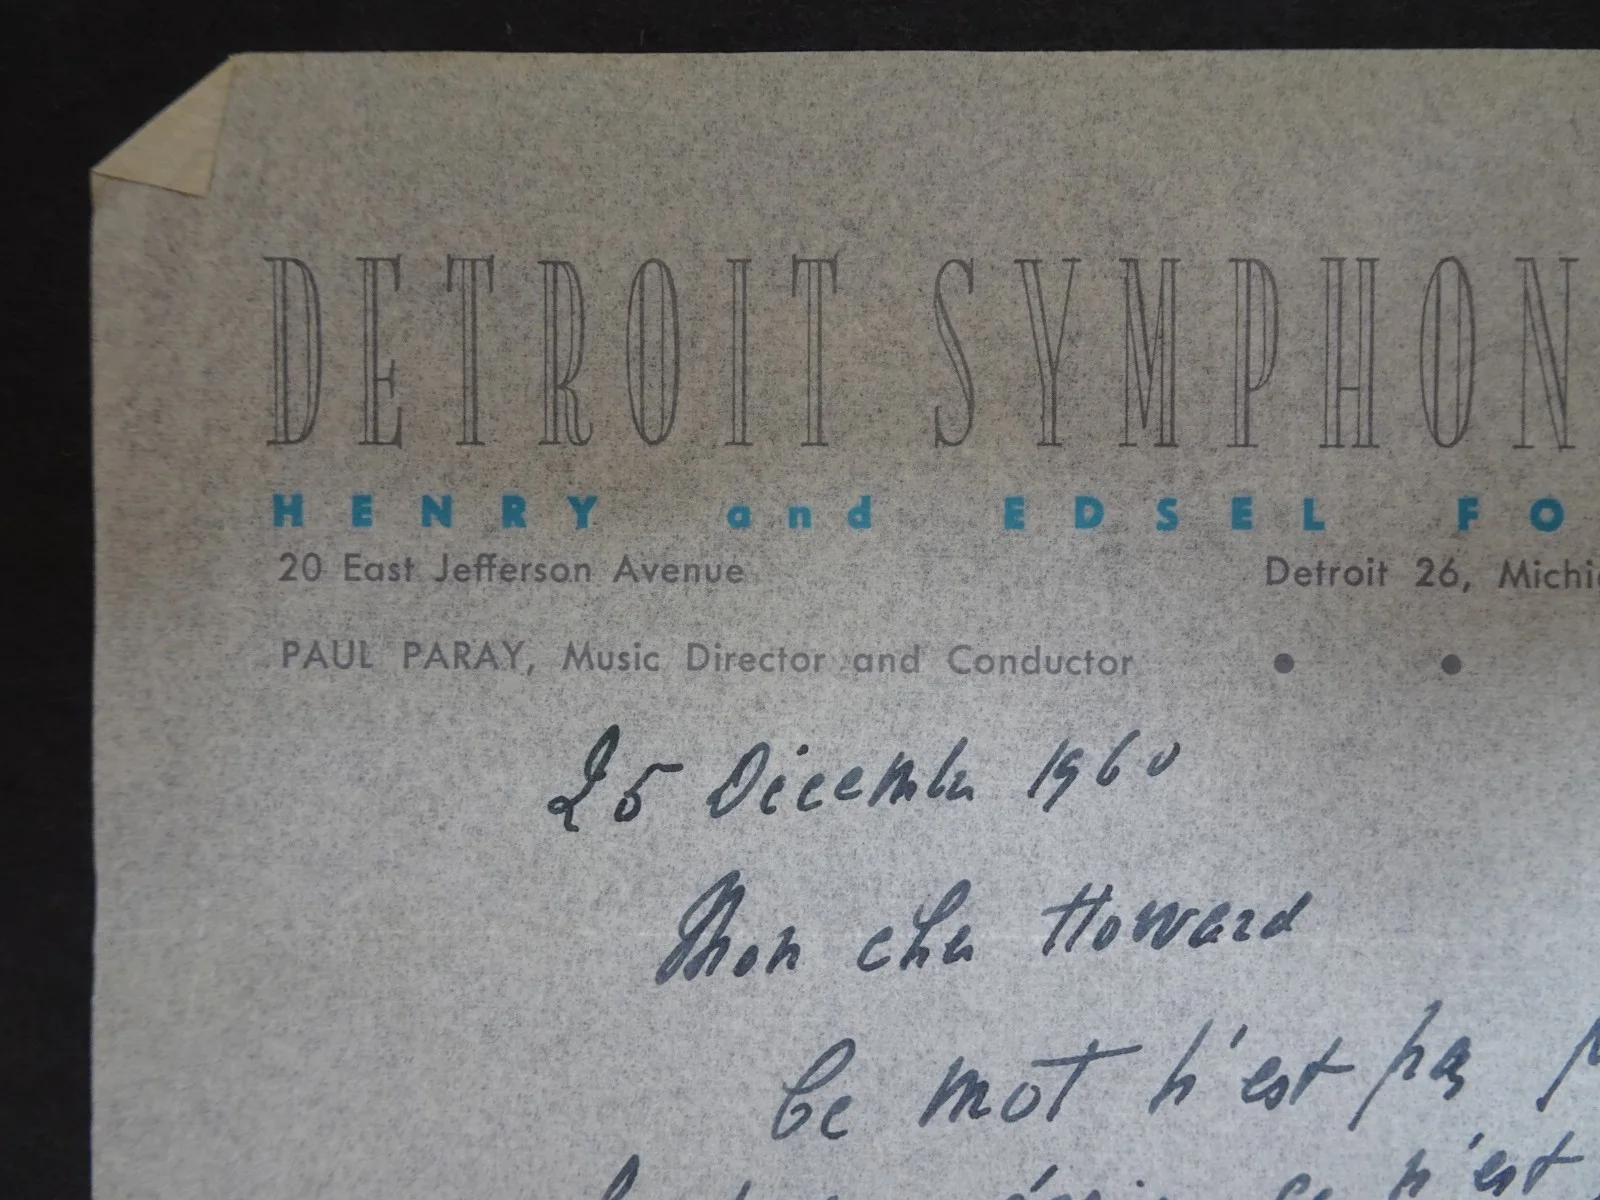 DETROIT SYMPHON
HENRY and EDSEL FO
20 East Jefferson Avenue Detroit 26, Michi
PAUL PARAY, Music Director and Conductor • •
25 Décembre 1960
Mon cher Howard
Ce mot n'est pas
ce n'est